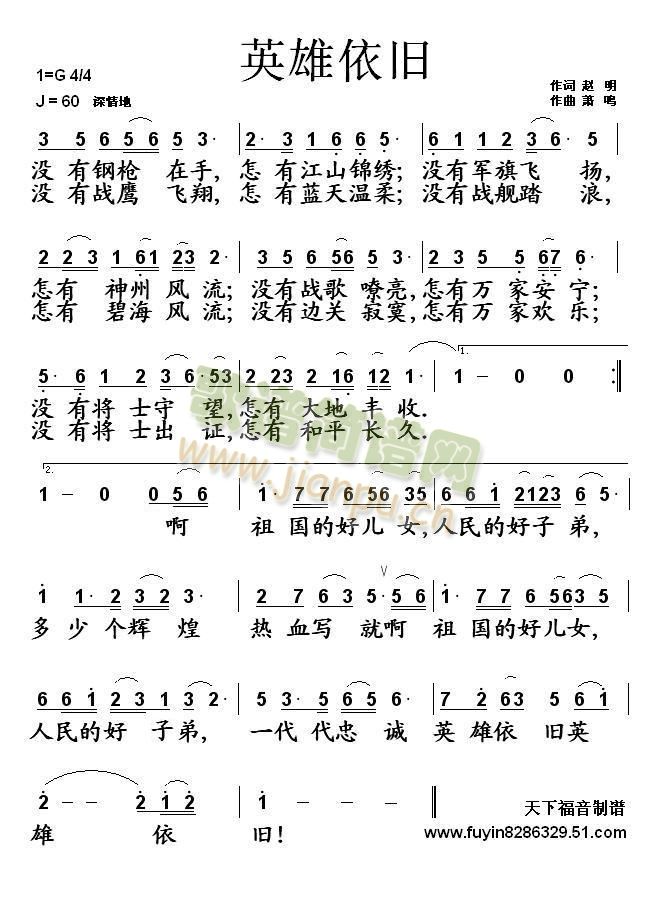 英雄依旧
1=G 4/4
作词 赵 明
J = 60 深情地
作曲 萧 鸣
3 5 6 5 6 5 3· | 2· 3 1 6 6 5 | 6 1 1 2 3 6· 5 |
没 有钢枪 在手, 怎 有江山锦绣; 没有军旗飞 扬,
没 有战鹰 飞翔, 怎 有蓝天温柔; 没有战舰踏 浪,
2 2 3 1 61 23 2· | 3 5 6 56 5 3· | 2 3 5 5 67 6· |
怎有 神州 风 流; 没有战歌 嘹亮, 怎有万 家安 宁;
怎有 碧海 风 流; 没有边关 寂寞, 怎有万 家欢 乐;
1.
5· 6 1 2 3 6·53 | 2 23 2 16 12 1· | 1 – 0 0 :|
没 有将 士守 望, 怎有 大地 丰 收.
没 有将 士出 证, 怎有 和平 长 久.
歌谱简谱网
www.jianpu.cn
2.
1 – 0 0 5 6 | 1· 7 7 6 56 35 | 6 6 1 2123 6 5 |
啊 祖 国的好儿 女, 人民的好子 弟,
1 1· 2 3 2 3· | 2 7 6 3 5· 5 6 | 1 7 7 6 563 5 |
多 少个辉 煌 热 血写 就啊 祖 国的好儿女,
6 6 1 2 3 1 3 2· | 5 3 5 3 6· | 7 2 63 5 6 1 |
人民的好 子弟, 一代 代忠 诚 英 雄依 旧英
2 – 2 1 2 | 1 – ‖
天下福音制谱
www.fuyin8286329.51.com
雄 依 旧!